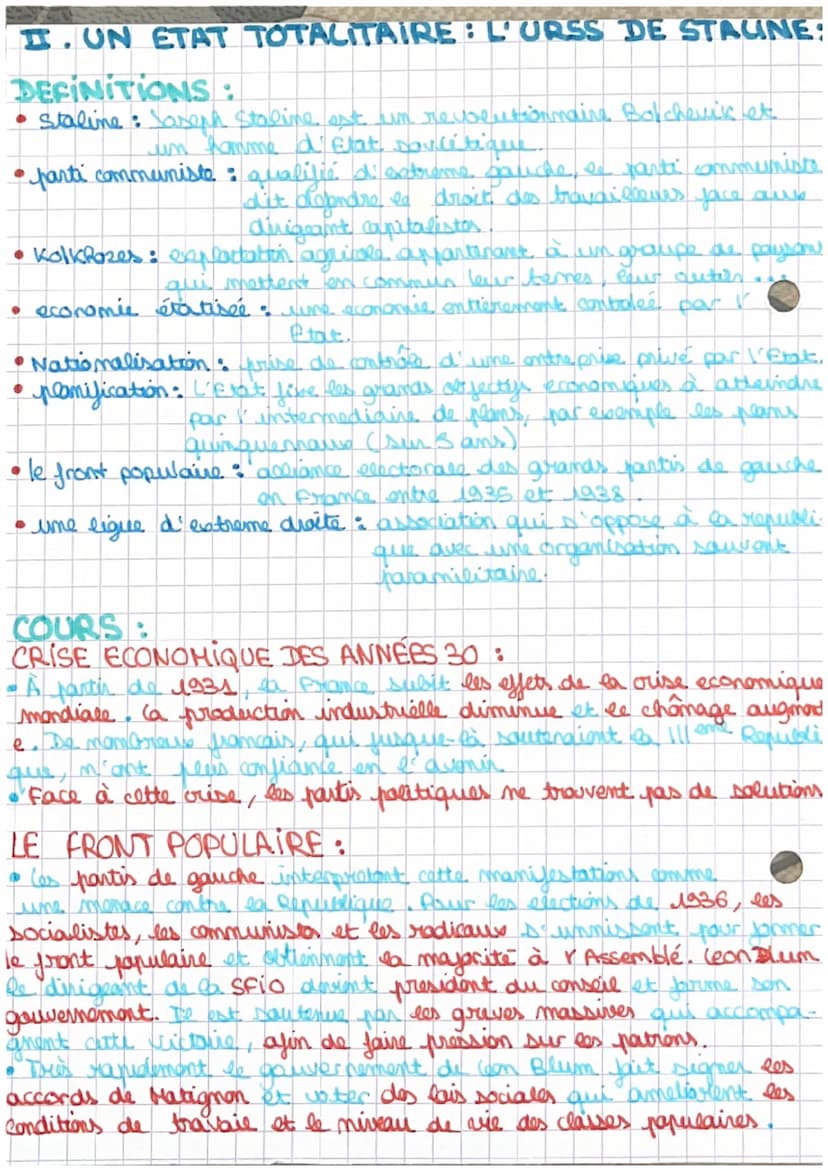 II. UN ETAT TOTALITAIRE : L'URSS DE STALINE :
DEFINITIONS :
• Staline : Joseph Staline est un revolutionnaire Bolchevik et
un homme d'Etat soviétique.
• parti communiste : qualifié d'extreme gauche, le parti communiste
dit défendre le droit des travailleurs face aux
dirigeant capitalistes.
• Kolkhozes : exploitation agricole appartenant à un groupe de paysans
qui mettent en commun leur terres, leur outien ...
• economie étatisée : une economie entièrement controleé par l'
Etat.
• Nationalisation : prise de contrôle d'une entreprise privé par l'Etat.
• planification : L'Etat fixe les grands objectifs economiques à atteindre
par l'intermediaire de plans, par exemple les plans
quinquennaux (sur 5 ans)
• le front populaire : alliance electorale des grands partis de gauche
en France entre 1935 et 1938.
• une ligue d'extreme droite : association qui s'oppose à la republi-
que avec une organisation souvent
paramilitaire.
COURS :
CRISE ECONOMIQUE DES ANNÉES 30 :
• À partir de 1931, la France subit les effets de la crise economique
mondiale. la production industrielle diminue et le chômage augment
e. De nombreux français, qui jusque-là soutenaient la IIIeme Republi
que, n'ont plus confiance en l'avenir
• Face à cette crise, les partis politiques ne trouvent pas de solutions
LE FRONT POPULAIRE :
• Les partis de gauche interpretent cette manifestations comme
une menace contre la Republique. Pour les elections de 1936, les
socialistes, les communistes et les radicaux s'unnissent pour former
le front populaire et obtiennent la majorité à l'Assemblé. Leon Blum
le dirigeant de la SFIO devient president du conseil et forme son
gouvernement. Il est soutenue par les greves massives qui accompa-
gnent cette victoire, afin de faire pression sur les patrons.
• Très rapidement le gouvernement de Leon Blum fait signer les
accords de Matignon et voter des lois sociales qui ameliorent les
conditions de travail et le niveau de vie des classes populaires.